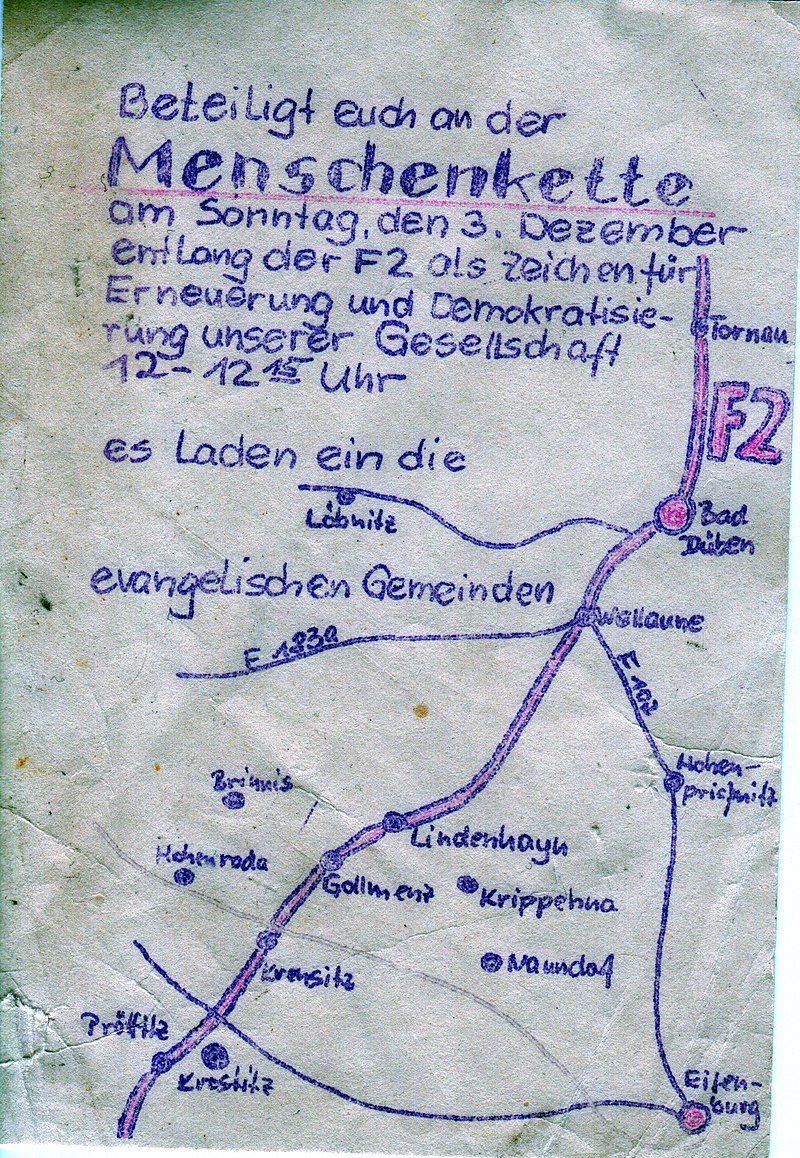 Beteiligt euch an der
Menschenkette
am Sonntag, den 3. Dezember
entlang der F2 als Zeichen für
Erneuerung und Demokratisie-
rung unserer Gesellschaft
12 - 12 15 Uhr
Tornau
F2
es laden ein die
Löbnitz
Bad
Düben
evangelischen Gemeinden
Wellaune
F 183a
F 102
Hohen-
prießnitz
Brinnis
Lindenhayn
Hohenroda
Gollmenz
Krippehna
Naundof
Krensitz
Pröttitz
Krostitz
Eilen-
burg